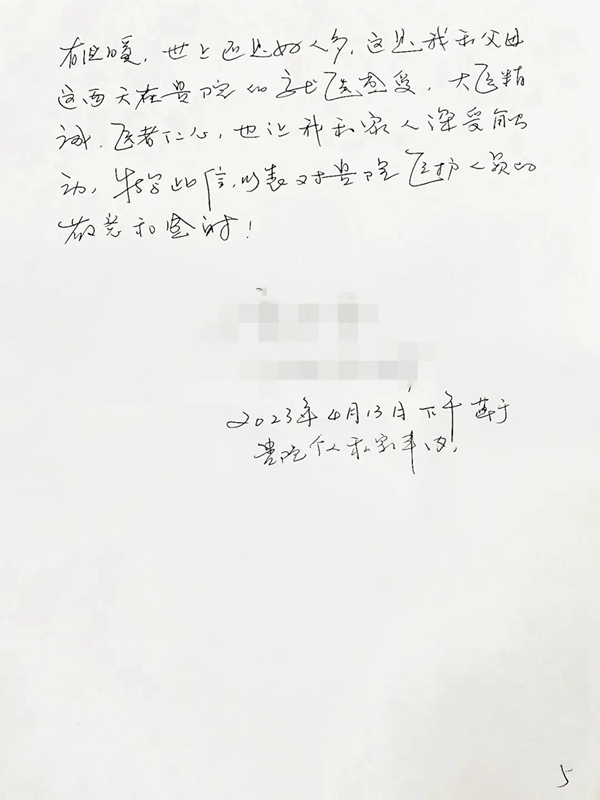 有温暖，世上还是好人多，这是我和父母
这两天在贵院的求医感受，大医精
诚，医者仁心，也让我和家人深受触
动，特写此信，以表对贵院医护人员的
敬意和感谢！
2023年4月13日下午 草于
贵院个人私家车内。
5